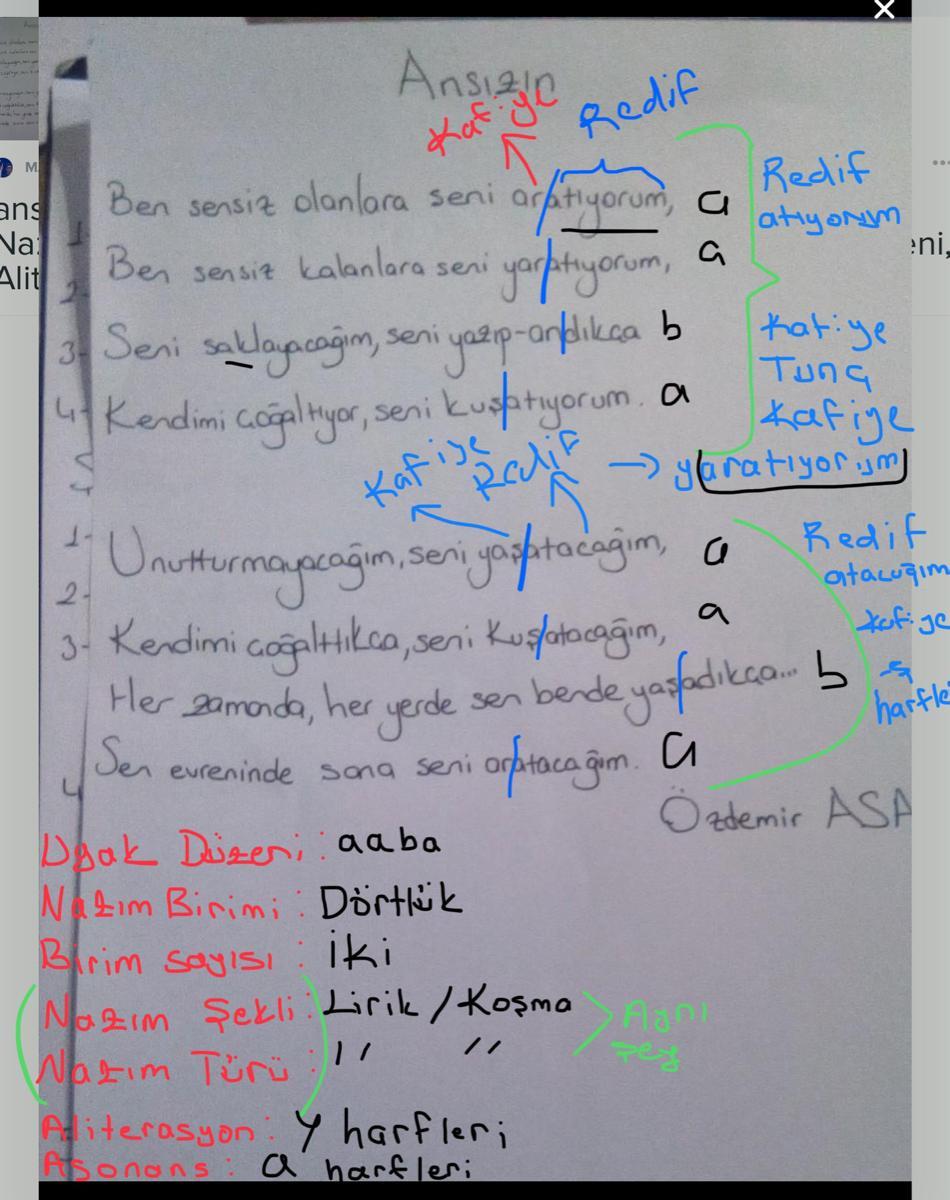 Ansızın
Kafiye
Redif
Ben sensiz olanlara seni aratıyorum, a
Redif
atıyorum
1
Ben sensiz kalanlara seni yaratıyorum, a
2-
3- Seni saklayacağım, seni yazıp-andıkca b
Kafiye
Tunç
Kafiye
4- Kendimi çoğaltıyor, seni kuşatıyorum. a
Kafiye Redif → yaratıyorum
1- Unutturmayacağım, seni yaşatacağım, a
Redif
atacağım
2-
3- Kendimi çoğalttıkca, seni kuşatacağım, a
kafiye
ş
Her zamanda, her yerde sen bende yaşadıkca... b
4 Sen evreninde sana seni aratacağım. a
Özdemir ASA
Uyak Düzeni: aaba
Nazım Birimi: Dörtlük
Birim sayısı: İki
Nazım Şekli: Lirik / Koşma
Aynı
şey
Nazım Türü: " "
Aliterasyon: y harfleri
Asonans: a harfleri